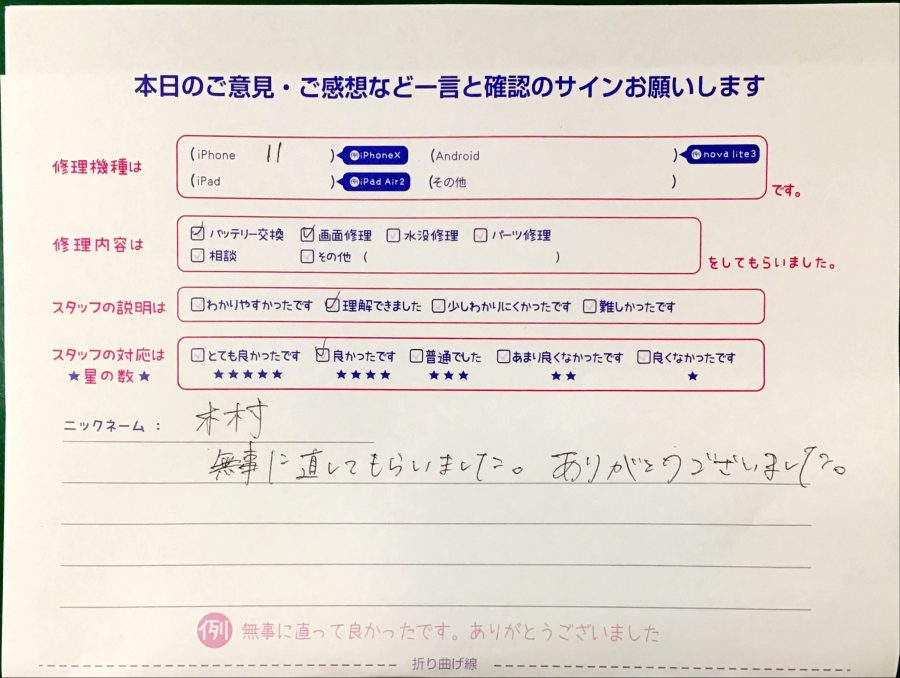 本日のご意見・ご感想など一言と確認のサインお願いします
修理機種は
(iPhone 11 ) 例iPhoneX (Android ) 例nova lite3
(iPad ) 例iPad Air2 (その他 )
です。
修理内容は
☑バッテリー交換 ☑画面修理 ☐水没修理 ☐パーツ修理
☐相談 ☐その他 ( )
をしてもらいました。
スタッフの説明は
☐わかりやすかったです ☑理解できました ☐少しわかりにくかったです ☐難しかったです
スタッフの対応は
★星の数★
☐とても良かったです ☑良かったです ☐普通でした ☐あまり良くなかったです ☐良くなかったです
★★★★★ ★★★★ ★★★ ★★ ★
ニックネーム: 木村
無事に直してもらいました。 ありがとうございました。
例 無事に直って良かったです。ありがとうございました
折り曲げ線